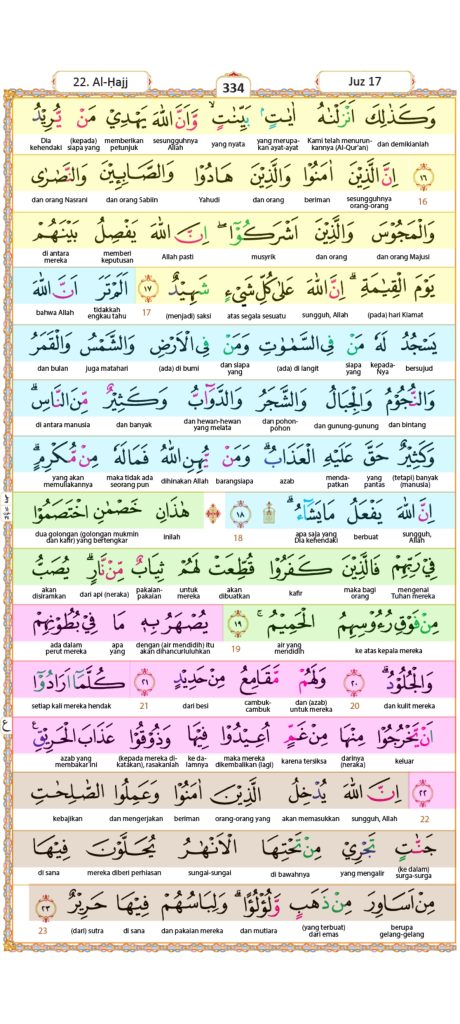 22. Al-Ḥajj
334
Juz 17
وَكَذٰلِكَ اَنْزَلْنٰهُ اٰيٰتٍۢ بَيِّنٰتٍۙ وَّاَنَّ اللّٰهَ يَهْدِيْ مَنْ يُّرِيْدُ
dan demikianlah Kami telah menurunkannya (Al-Qur'an) yang merupakan ayat-ayat yang nyata sesungguhnya Allah memberikan petunjuk (kepada) siapa yang Dia kehendaki
١٦ اِنَّ الَّذِيْنَ اٰمَنُوْا وَالَّذِيْنَ هَادُوْا وَالصَّابِـِٕيْنَ وَالنَّصٰرٰى
16 sesungguhnya orang-orang beriman dan orang Yahudi dan orang Sabiin dan orang Nasrani
وَالْمَجُوْسَ وَالَّذِيْنَ اَشْرَكُوْٓا ۖاِنَّ اللّٰهَ يَفْصِلُ بَيْنَهُمْ
dan orang Majusi dan orang musyrik Allah pasti memberi keputusan di antara mereka
يَوْمَ الْقِيٰمَةِۗ اِنَّ اللّٰهَ عَلٰى كُلِّ شَيْءٍ شَهِيْدٌ ١٧ اَلَمْ تَرَ اَنَّ اللّٰهَ
(pada) hari Kiamat sungguh, Allah atas segala sesuatu (menjadi) saksi 17 tidakkah engkau tahu bahwa Allah
يَسْجُدُ لَهٗ مَنْ فِى السَّمٰوٰتِ وَمَنْ فِى الْاَرْضِ وَالشَّمْسُ وَالْقَمَرُ
bersujud kepada-Nya siapa yang (ada) di langit dan siapa yang (ada) di bumi juga matahari dan bulan
وَالنُّجُوْمُ وَالْجِبَالُ وَالشَّجَرُ وَالدَّوَاۤبُّ وَكَثِيْرٌ مِّنَ النَّاسِۗ
dan bintang dan gunung-gunung dan pohon-pohon dan hewan-hewan yang melata dan banyak di antara manusia
وَكَثِيْرٌ حَقَّ عَلَيْهِ الْعَذَابُۗ وَمَنْ يُّهِنِ اللّٰهُ فَمَا لَهٗ مِنْ مُّكْرِمٍۗ
(tetapi) banyak (manusia) yang pantas mendapatkan azab barangsiapa dihinakan Allah maka tidak ada seorang pun yang akan memuliakannya
اِنَّ اللّٰهَ يَفْعَلُ مَا يَشَاۤءُ ۩ ١٨ هٰذَانِ خَصْمٰنِ اخْتَصَمُوْا
sungguh, Allah berbuat apa saja yang Dia kehendaki 18 inilah dua golongan (golongan mukmin dan kafir) yang bertengkar
فِيْ رَبِّهِمْ فَالَّذِيْنَ كَفَرُوْا قُطِّعَتْ لَهُمْ ثِيَابٌ مِّنْ نَّارٍۗ يُصَبُّ
mengenai Tuhan mereka maka bagi orang kafir akan dibuatkan untuk mereka pakaian-pakaian dari api (neraka) akan disiramkan
مِنْ فَوْقِ رُءُوْسِهِمُ الْحَمِيْمُۚ ١٩ يُصْهَرُ بِهٖ مَا فِيْ بُطُوْنِهِمْ
ke atas kepala mereka air yang mendidih 19 dengan (air mendidih) itu akan dihancurluluhkan apa yang ada dalam perut mereka
وَالْجُلُوْدُۗ ٢٠ وَلَهُمْ مَّقَامِعُ مِنْ حَدِيْدٍ ٢١ كُلَّمَآ اَرَادُوْٓا
dan kulit mereka 20 dan (azab) untuk mereka cambuk-cambuk dari besi 21 setiap kali mereka hendak
اَنْ يَّخْرُجُوْا مِنْهَا مِنْ غَمٍّ اُعِيْدُوْا فِيْهَا وَذُوْقُوْا عَذَابَ الْحَرِيْقِ
keluar darinya (neraka) karena tersiksa maka mereka dikembalikan (lagi) ke dalamnya (kepada mereka dikatakan), rasakanlah azab yang membakar ini
٢٢ اِنَّ اللّٰهَ يُدْخِلُ الَّذِيْنَ اٰمَنُوْا وَعَمِلُوا الصّٰلِحٰتِ
22 sungguh, Allah akan memasukkan orang-orang beriman dan mengerjakan kebajikan
جَنّٰتٍ تَجْرِيْ مِنْ تَحْتِهَا الْاَنْهٰرُ يُحَلَّوْنَ فِيْهَا
(ke dalam) surga-surga yang mengalir di bawahnya sungai-sungai mereka diberi perhiasan di sana
مِنْ اَسَاوِرَ مِنْ ذَهَبٍ وَّلُؤْلُؤًاۗ وَلِبَاسُهُمْ فِيْهَا حَرِيْرٌ ٢٣
berupa gelang-gelang (yang terbuat) dari emas dan mutiara dan pakaian mereka di sana (dari) sutra 23
ع